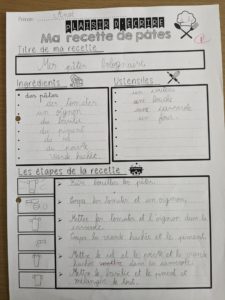 Prénom :
PLAISIR D'ÉCRIRE
Ma recette de pâtes
Titre de ma recette
Mes pâtes bolognaise
Ingrédients
Ustensiles
des pâtes
des tomates
un oignon
du basilic
du piment
du sel
du poivre
viande hachée
un couteau
une
une casserole
un four
Les étapes de la recette
Faire bouillir les pâtes.
Coupe les tomates et un oignon,
Mettre les tomates et l'oignon dans la casserole
Coupe la viande hachée et le piment,
Mettre le sel et le poivre et la viande hachée mettre dans la casserole
Mettre le basilic et le piment et mélanger le tout.